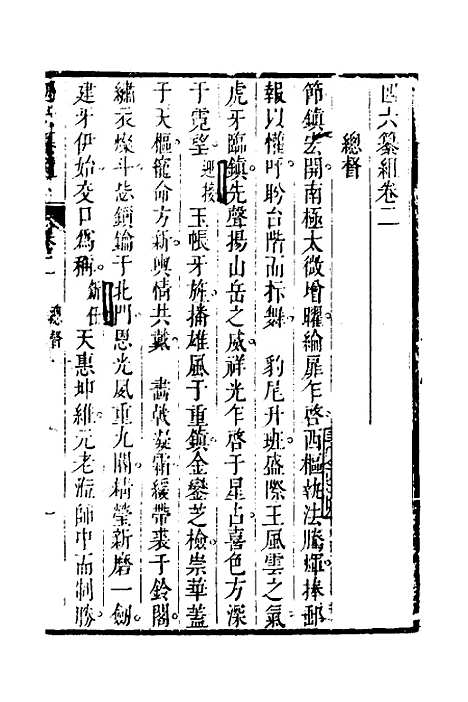 四六纂組卷二
總督
節鎮宏開南極太微增曜綸扉乍啓西樞執法騰輝捧郵
報以懽呼盼台階而抃舞 豹尾升班盛際王風雲之氣
虎牙臨鎮先聲揚山岳之威祥光乍啓于星占喜色方深
于霓望 迎接 玉帳牙旂播雄風于重鎮金鑾芝檢崇華蓋
于天樞寵命方新輿情共戴 畫戟凝霜緩帶裘于鈴閣
繡衣燦斗惎鎖鑰于北門恩光風重九關精瑩新磨一劍
建牙伊始交口爲稱 新任 天惠坤維元老蒞師中而制勝
卷二
總督
一